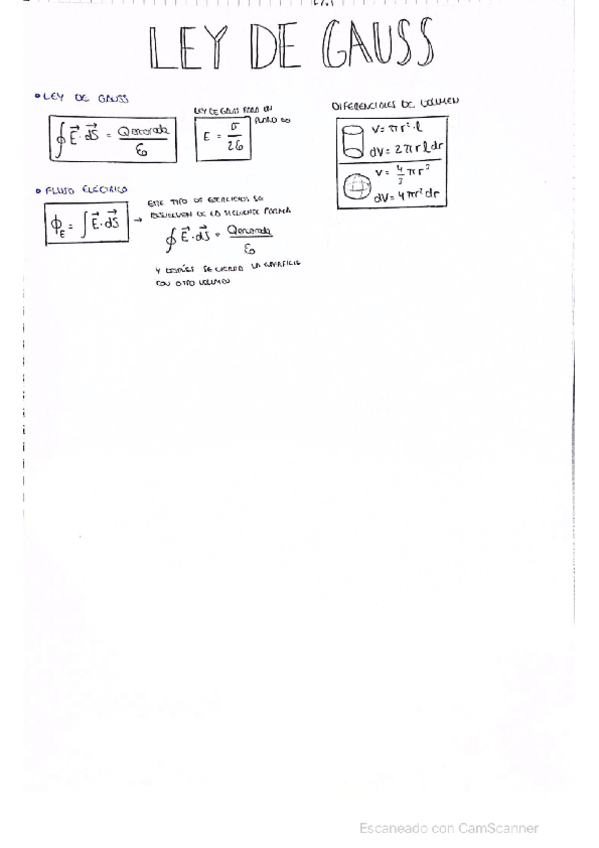 LEY DE GAUSS
• LEY DE GAUSS
∮ E⃗ · dS⃗ = Qencerrada / ε₀
LEY DE GAUSS PARA UN
PLANO ∞
E = σ / 2ε₀
DIFERENCIALES DE VOLUMEN
V = πr² · l
dV = 2πr l dr
V = 4/3 πr³
dV = 4πr² dr
• FLUJO ELÉCTRICO
ϕE = ∫ E⃗ · dS⃗ →
ESTE TIPO DE EJERCICIOS SE
RESUELVEN DE LA SIGUIENTE FORMA
∮ E⃗ · dS⃗ = Qencerrada / ε₀
Y DESPUÉS SE CIERRA LA SUPERFICIE
CON OTRO VOLUMEN
Escaneado con CamScanner